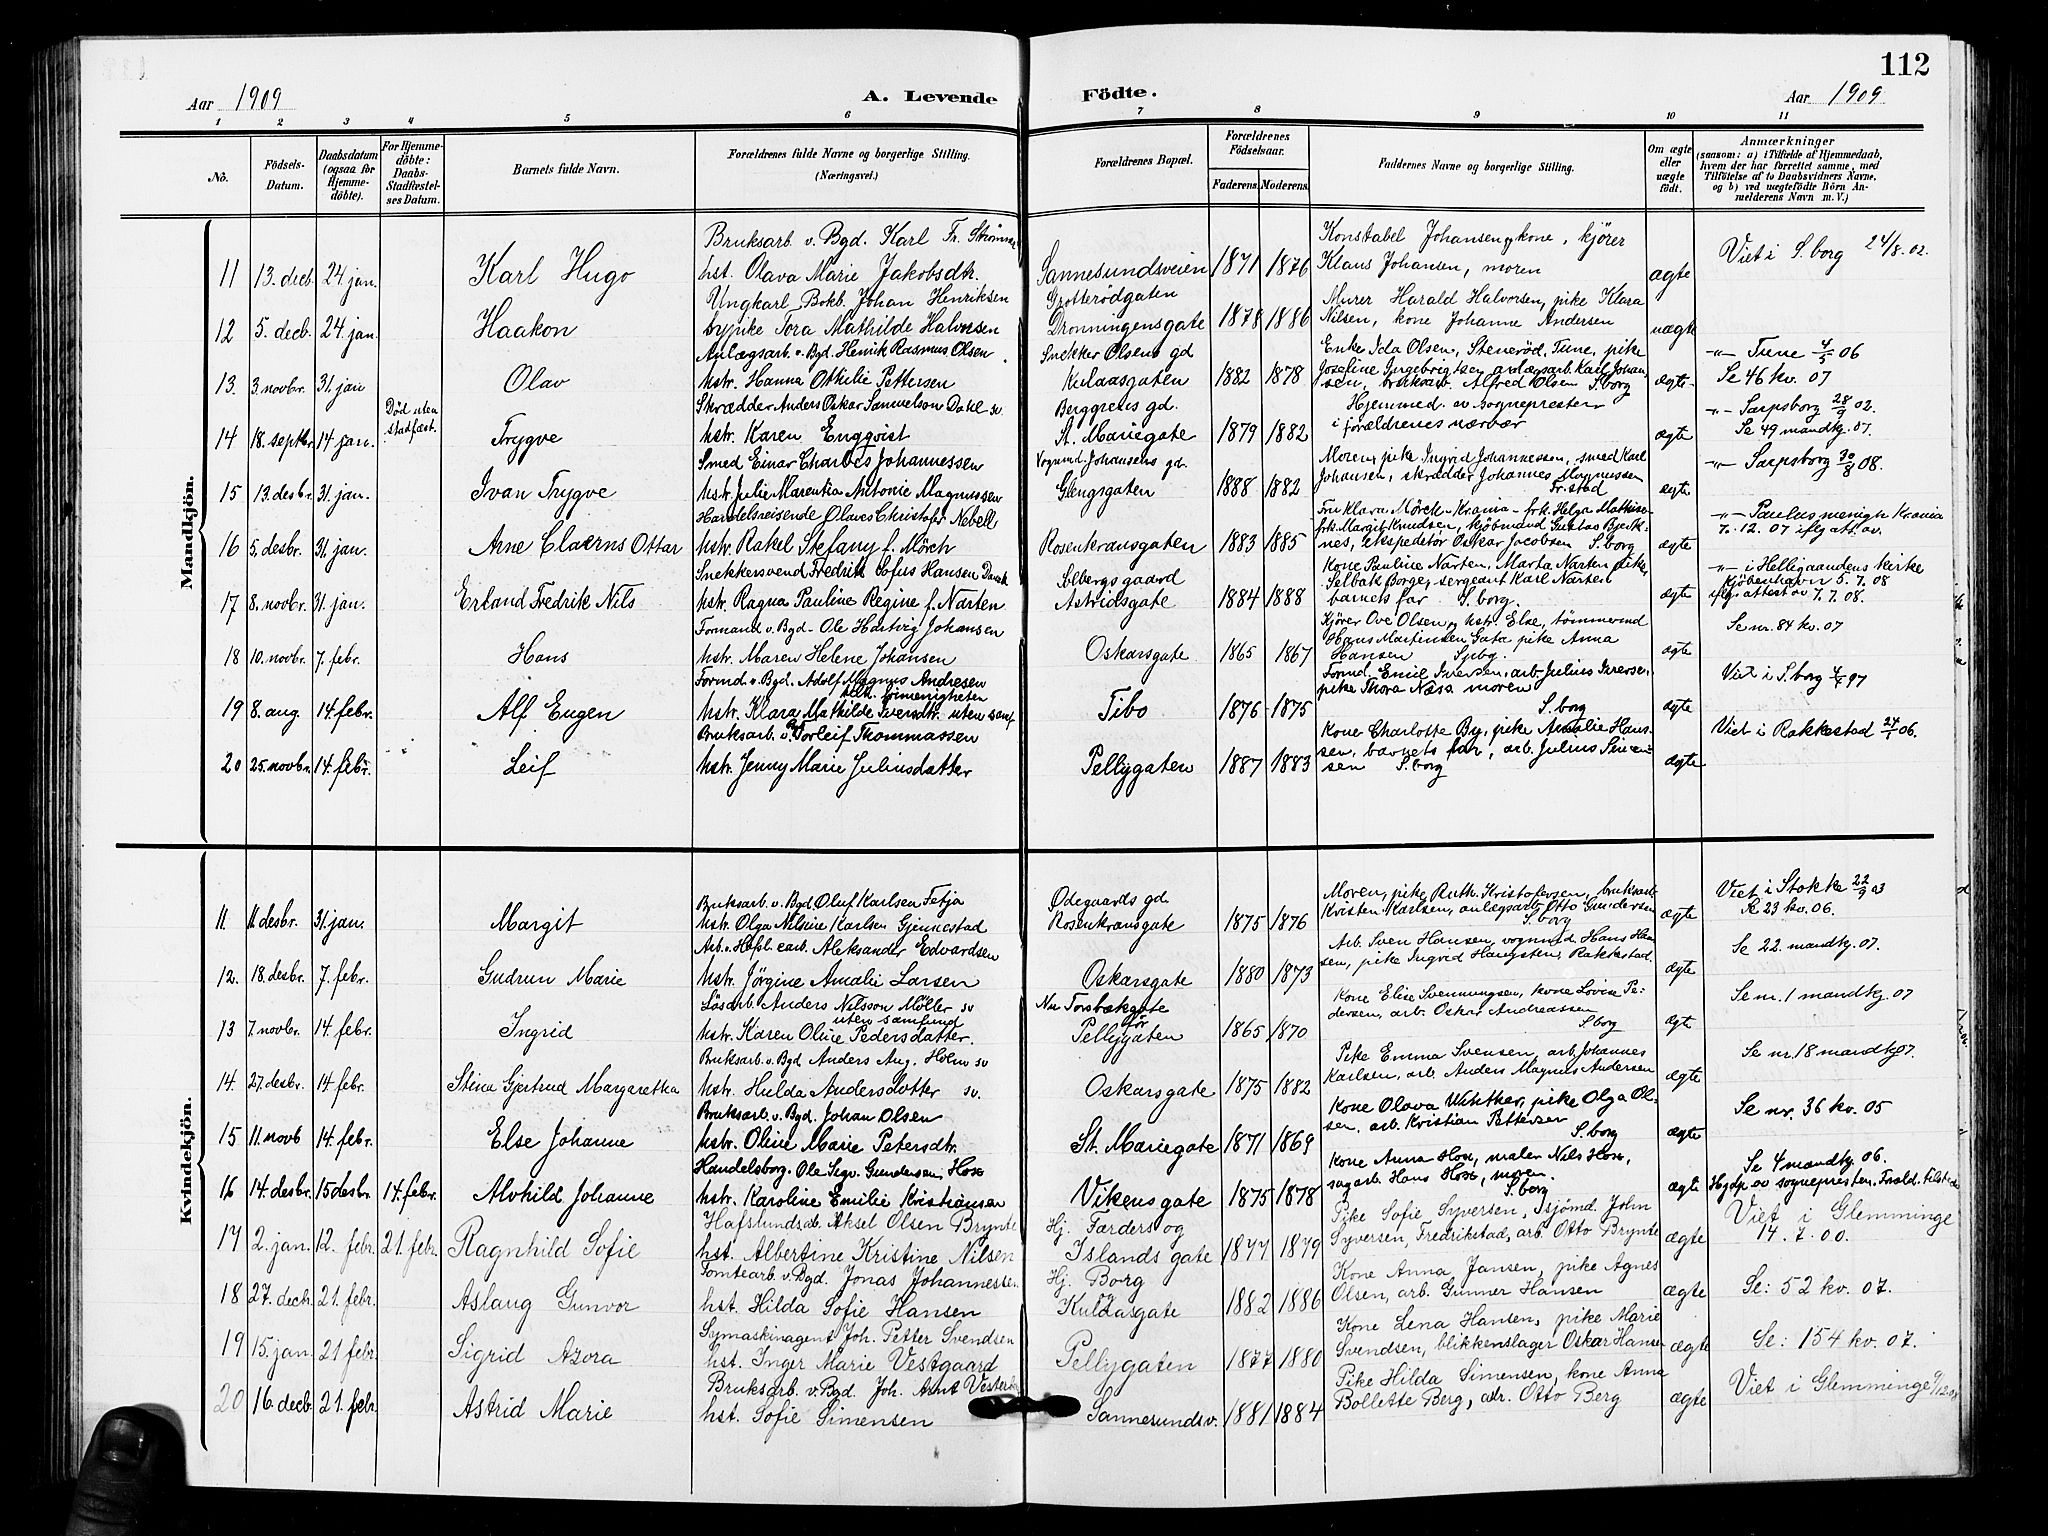 112
Aar 1909 A. Levende Födte. Aar 1909
1 2 3 4 5 6 7 8 9 10 11
No.
Födsels-Datum.
Daabsdatum (ogsaa for Hjemme-döbte).
For Hjemme-döbte: Daabs-Stadfæstel-ses Datum.
Barnets fulde Navn.
Forældrenes fulde Navne og borgerlige Stilling. (Næringsvei.)
Forældrenes Bopæl.
Forældrenes Födselsaar.
Faderens. Moderens.
Faddernes Navne og borgerlige Stilling.
Om ægte eller uægte födt.
Anmærkninger
(saasom: a) i Tilfælde af Hjemmedaab, hvem der har forrettet samme, med Tilföielse af to Daabsvidners Navne, og b) ved uægtefödte Börn An-melderens Navn m. V.)
Mandkjön.
Bruksarb. v. Bgd. Karl Fr. Konstabel Johansen, kone, kjører
11 13. decb. 24. jan. Karl Hugo hst. Olava Marie Jakobsdtr. Sannesundsveien 1871 1876 Klaus Johansen, moren ægte Viet i S.borg 24/8. 02.
Ungkarl, Bokb. Johan Henriksen Grotterødgaten Murer Harald Halvorsen, pike Klara
12 5. decb. 24. jan. Haakon bypike Tora Mathilde Halvorsen Dronningensgate 1878 1886 Nilsen, kone Johanne Andersen uægte
Anlægsarb. v. Bgd. Henrik Rasmus Olsen Snekker Olsens gd Enke Ida Olsen, Stenerød, Tune, pike -"- Tune 4/5 06
13. 3. novbr. 31. jan Olav hstr. Hanna Othilie Pettersen Kulaasgaten 1882 1878 Josefine Ingebrigtsen anlægsarb. Karl Johan-sen, bruksarb. Alfred Olsen S.borg ægte Se 46 kv. 07
Skrædder Anders Oskar Samuelson Dahl sv. Berggrens gd. Hjemmed. av sognepresten -"- Sarpsborg 28/9 02.
14 18. septbr. 14. jan. Død uten stadfæst. Trygve hstr. Karen Engqvist St. Mariegate 1879 1882 i forældrenes nærvær ægte Se 49 mandkj. 07.
Smed Einar Charles Johannessen Vognmd Johansens gd. Moren, pike Ingrid Johannessen, smed Karl -"- Sarpsborg 30/8 08.
15 13. desbr. 31. jan. Ivan Trygve hstr. Julie Marentia Antonie Magnussen Glengsgaten 1888 1882 Johansen, skrædder Johannes Magnussen Fr.stad ægte
Handelsreisende Olaves Christofer Nebell Fru Klara Mörch Krania, frk. Helga Mathise- -"- Paulus menigh Krania
16 5. desbr. 31. jan. Arne Claerns Ottar hstr. Rakel Stefany f. Mörch Rosenkransgaten 1883 1885 frk. Margit Knudsen, kjöbmand Gustav Bjerk-nes, ekspeditör Oskar Jacobsen S.borg ægte 7. 12. 07 iflg att. av.
Snekkersvend Fredrik Sofus Hansen Dansk Solbergs gaard Kone Pauline Narten, Marta Narten pike, -"- i Helligaandens kirke Kjöbenhavn 5. 7. 08
17 8. novbr. 31. jan. Erland Fredrik Nils hstr. Ragna Pauline Regine f. Narten Astridsgate 1884 1888 Selbak Borge, sergeant Karl Narten barnets far S.borg. ægte iflg attest av 7. 7. 08.
Formand v. Bgd. Ole Hartvig Johansen Kjører Ove Olsen og hstr. Else, tömmermd Se nr. 84 kv. 07
18 10. novbr. 7. febr. Hans hstr. Maren Helene Johansen Oskarsgate 1865 1867 Hans Martinsen Gata pike Anna Hansen Spbg. ægte
Formd. v. Bgd. Adolf Magnus Andresen Formd. Emil Iversen, arb. Julius Iversen, Viet i S.borg 97
19 8. aug. 14. febr. Alf Eugen hstr. Klara Mathilde Iversdtr. uten samf Tibo 1876 1875 pike Thora Næss moren S.borg ægte
Bruksarb. v. Bgd Torleif Thommassen Kone Charlotte By, pike Amalie Hans- Viet i Rakkestad 24/1 06.
20 25. novbr. 14. febr. Leif hstr. Jenny Marie Juliusdatter Pellygaten 1887 1883 sen, barnets far, arb. Julius Simen-sen S.borg ægte
Kvindekjön.
Bruksarb. v. Bgd Oluf Karlsen Fetja Ødegaards gd. Moren, pike Ruth Kristofersen, bruksarb Viet i Stokke 22/9 03
11. 11 desbr. 31. jan. Margit hstr. Olga Nilsine Karlsen Gjennestad Rosenkransgate 1875 1876 Kristen Karlsen, anlægsarb. Otto Gundersen S.borg ægte R 23 kv. 06.
Arb. v. Hafsl. carb. Aleksander Edvardsen Arb. Sven Hansen, vognmd. Hans Han Se 22. mandkj. 07.
12. 18. desbr. 7. febr. Gudrun Marie hstr. Jörgine Amalie Larsen Oskarsgate 1880 1873 sen, pike Ingrid Rakkestad. ægte
Lösarb. Anders Nilsson Möller sv Nu Torsbækgate Kone Elise Svenningsen, kone Lovise Pe- Se nr. 1 mandkj. 07
13 7. novbr. 14. febr. Ingrid hstr. Karen Oline Pedersdatter. uten samfund för Pellygaten 1865 1870 dersen, arb. Oskar Andreassen S.borg ægte
Bruksarb. v. Bgd Anders Aug. Holm sv Pike Emma Svensen, arb. Johannes Se nr. 18 mandkj 07.
14. 27. desbr. 14. febr. Stina Gjertrud Margaretha hstr. Hulda Andersdotter sv. Oskarsgate 1875 1882 Karlsen, arb. Anders Magnus Andersen ægte
Bruksarb. v. Bgd. Johan Olsen Kone Olava Winther, pike Olga Ol- Se nr. 36 kv. 05
15 11. novb 14. febr. Else Johanne hstr. Oline Marie Petersdtr. St. Mariegate 1871 1869 sen, arb. Kristian Pettersen S.borg ægte
Handelsborg. Ole Sigv. Gundersen Hox Kone Anna Hox, maler Nils Hox, Se 4 mandkj. 06.
16 14. desbr. 15 desbr. 14. febr. Alvhild Johanne hstr. Karoline Emilie Kristiansen Vikens gate 1875 1878 sagarb. Hans Hox, moren. S.borg ægte Hjdp av sognepresten.
Hafslundsarb. Aksel Olsen Brynte Hj. Færders og Pike Sofie Syversen, sjömd. John Viet i Glemminge
17 2. jan. 12. febr. 21. febr. Ragnhild Sofie hst. Albertine Kristine Nilsen Islands gate 1877 1879 Syversen, Fredrikstad, arb. Otto Brynte ægte 14. 7. 00.
Tomtearb. v. Bgd. Jonas Johannessen Hj. Borg Kone Anna Jansen, pike Agnes
18 27. decbr. 21. febr. Aslaug Gunvor hst. Hilda Sofie Hansen og Kulaasgate 1882 1886 Olsen, arb. Gunner Hansen ægte Se: 52 kv. 07.
Symaskinagent Joh. Petter Svendsen Kone Lena Hansen, pike Marie
19 15. jan. 21 febr. Sigrid Azora hst. Inger Marie Vestgaard Pellygaten 1877 1880 Svendsen, blikkenslager Oskar Hansen ægte Se: 154 kv. 07.
Bruksarb. v. Bgd. Joh. Arnt Pike Hilda Simensen, kone Anna Viet i Glemminge
20 16. decb. 21. febr. Astrid Marie hst. Sofie Simensen Sannesundsv. 1881 1884 Bollette Berg, arb. Otto Berg ægte